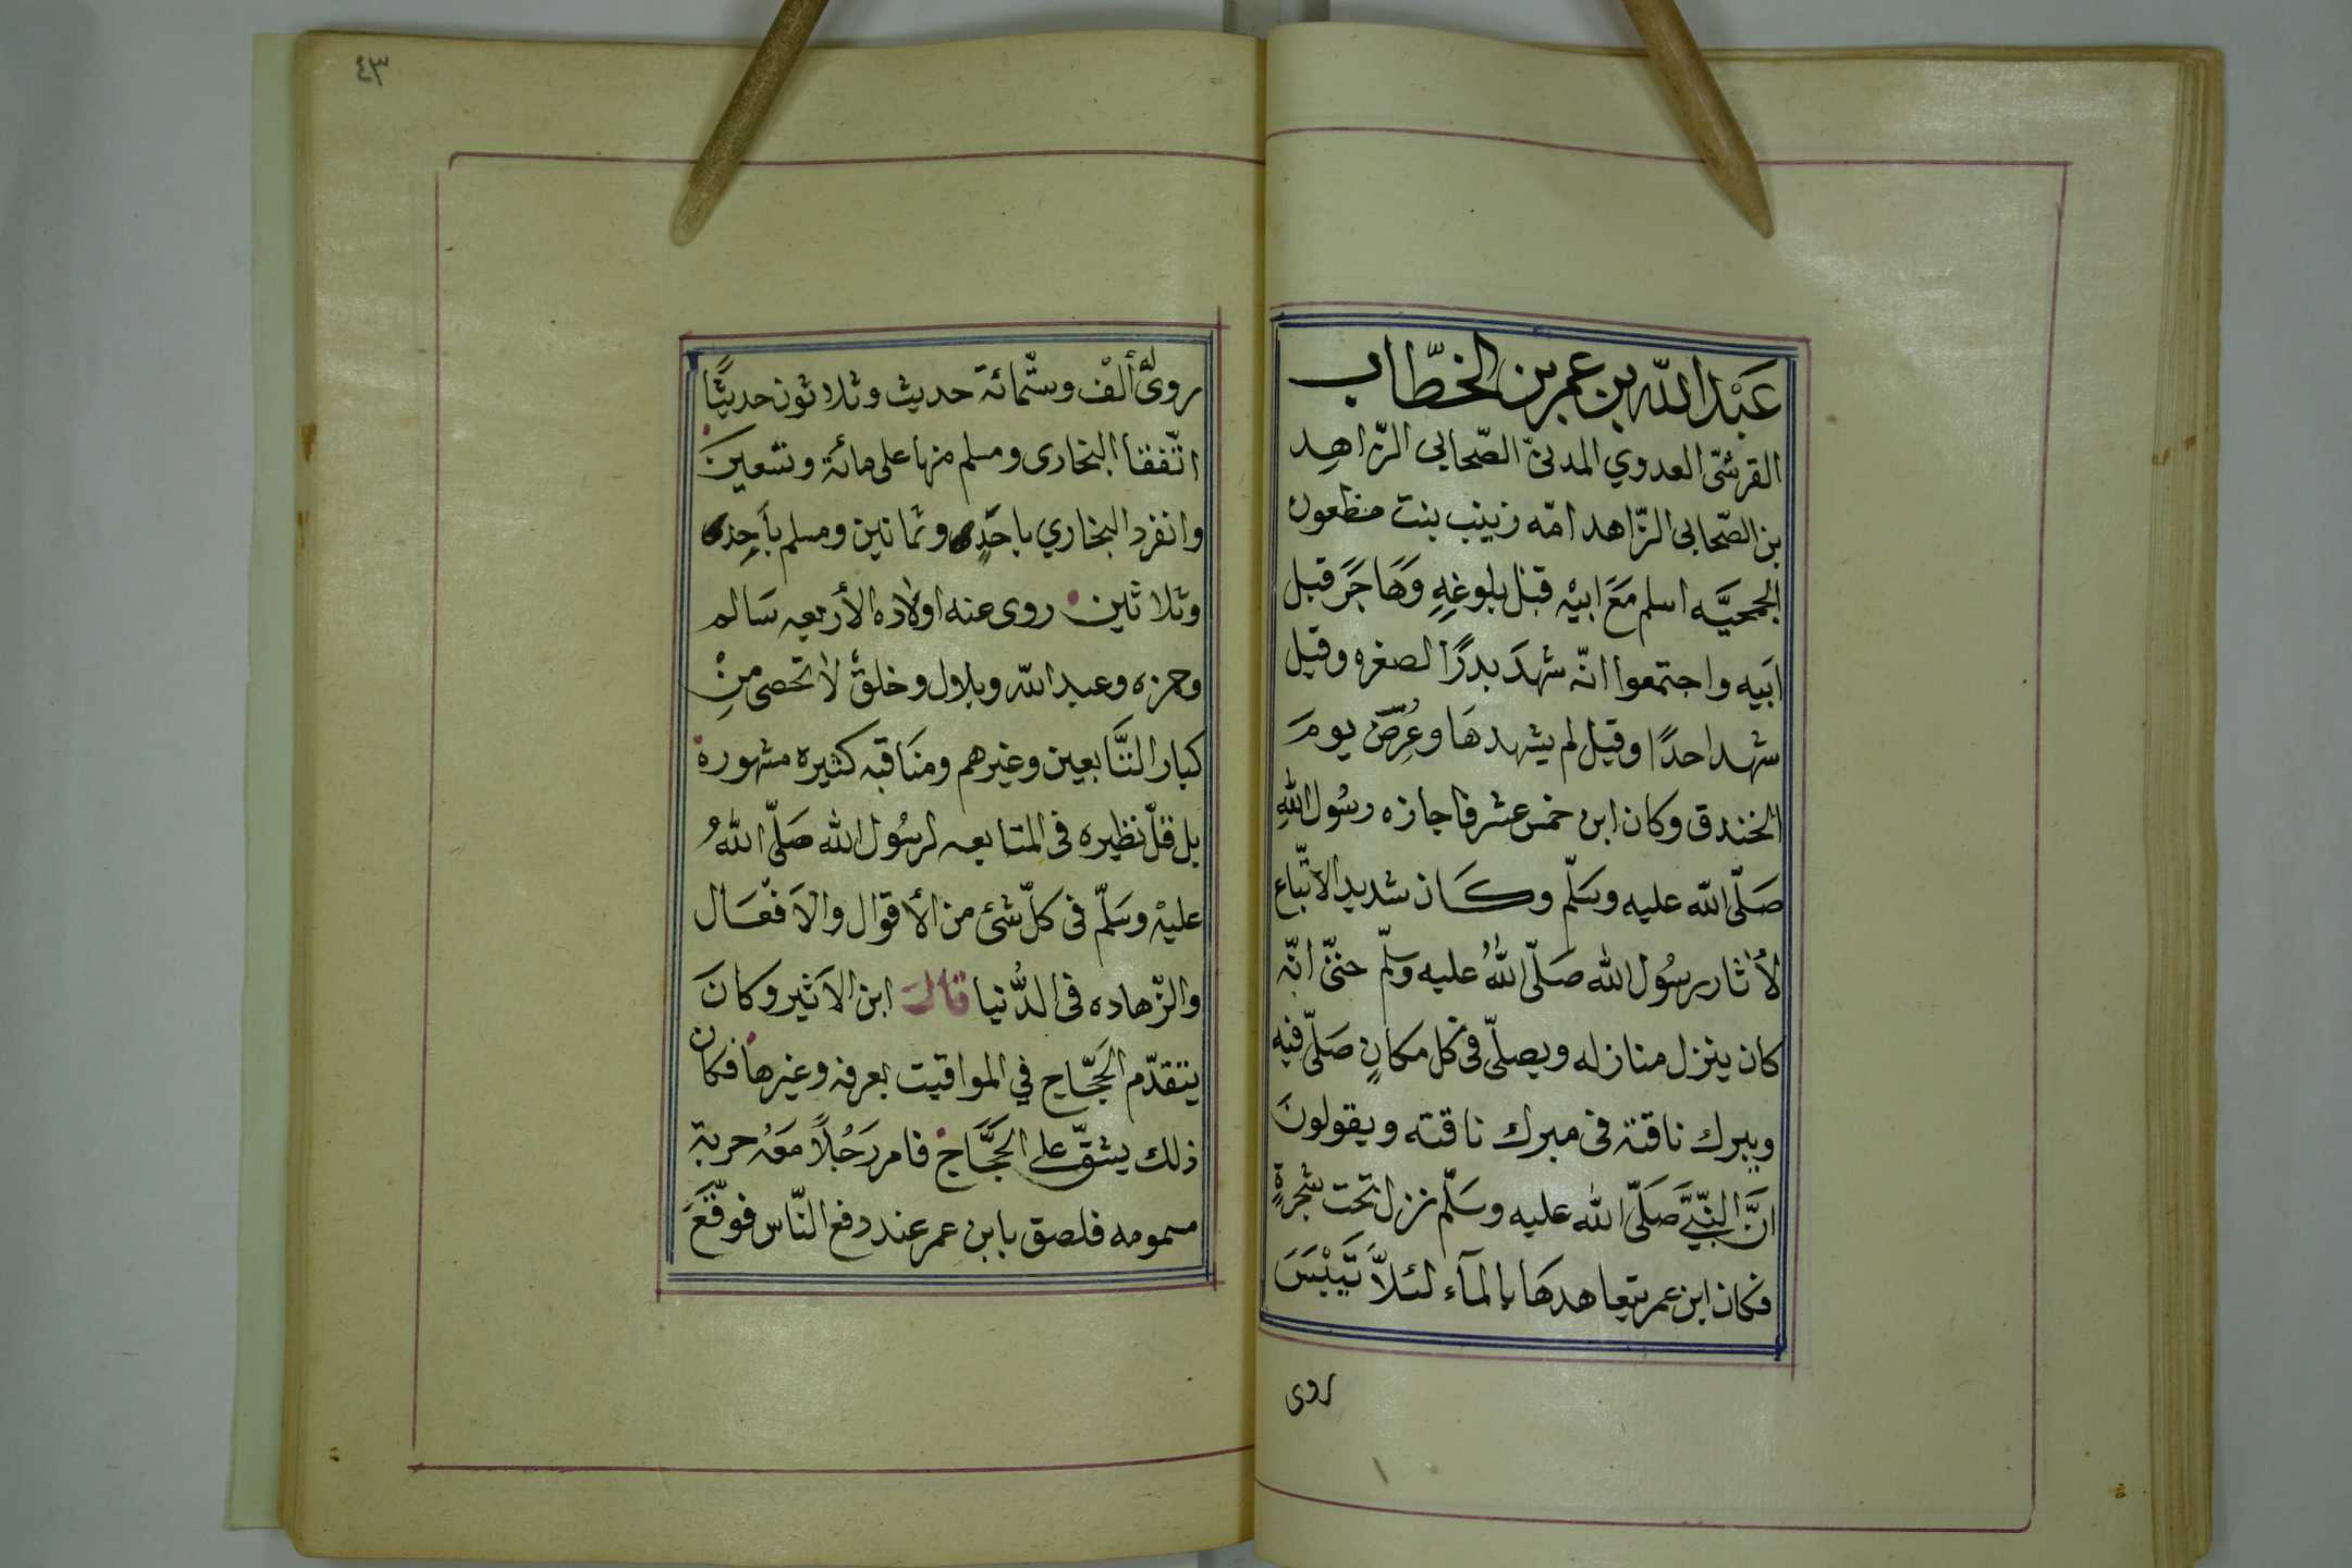 عَبْدالله بن عمر بن الخطّاب
القرشىّ العدوي المدنىّ الصّحابى الزّاهِد
بن الصّحابى الزّاهد امّه زينب بنت مظعون
الجمحيَّه اسلم مَعَ ابيْه قبْل بلوغِهِ وَهَاجَرَ قبل
ابَيه واجتمعوا انّه شهدَ بدرًا لصغره وقيل
شهد احدًا وقيل لم يشهدهَا وعُرِضَ يومَ
الخندق وكان ابن خمس عشر فاجازه رسُول اللهِ
صَلّى الله عليه وسَلّم وكَان شديد الاتّباع
لأثار رسُول الله صَلّى اللهُ عليه وسلّم حتىّ انّه
كان ينزل منازله ويصلّى فى كل مكانٍ صَلّى فيه
ويبرك ناقته فى مبرك ناقته ويقولونَ
انَّ النّبيَّ صَلَّى الله عليه وسَلّم نزل تحت شجرةٍ
فكان ابن عمر يتعاهدهَا بالمآء لئلاَّ تَيْبَسَ
روى
٤٣
روى لَهُ ألْف وستّمائة حديث وثلاثون حديثًا
اتّفقا البخارى ومسلم منها على مائة وتسْعينَ
وانفرد البخاري باحَدٍ وثمانين ومسلم بأحِد
وثلاثين روى عنه اولاده الأربعه سَالم
وحمزه وعبد الله وبلال وخلقٌ لا تحصى مِنْ
كبار التَّابعين وغيرهم ومنَاقبه كثيره مشهورة
بل قلّ نظيره فى المتابعه لرسُول الله صَلّى اللهُ
عليْه وسَلّم فى كلّ شئ من الأقوَال والاَفعَال
والزّهاده فى الدُّنيا قال ابن الاَثير وكانَ
يتقدّم الحَجَّاج في المواقيت بعرفه وغيرها فكان
ذلك يشقّ على الحَجَّاج فامر رَجُلاً مَعَهُ حربة
مسمومه فلصق بابن عمر عند دفع النّاس فوقَعَ